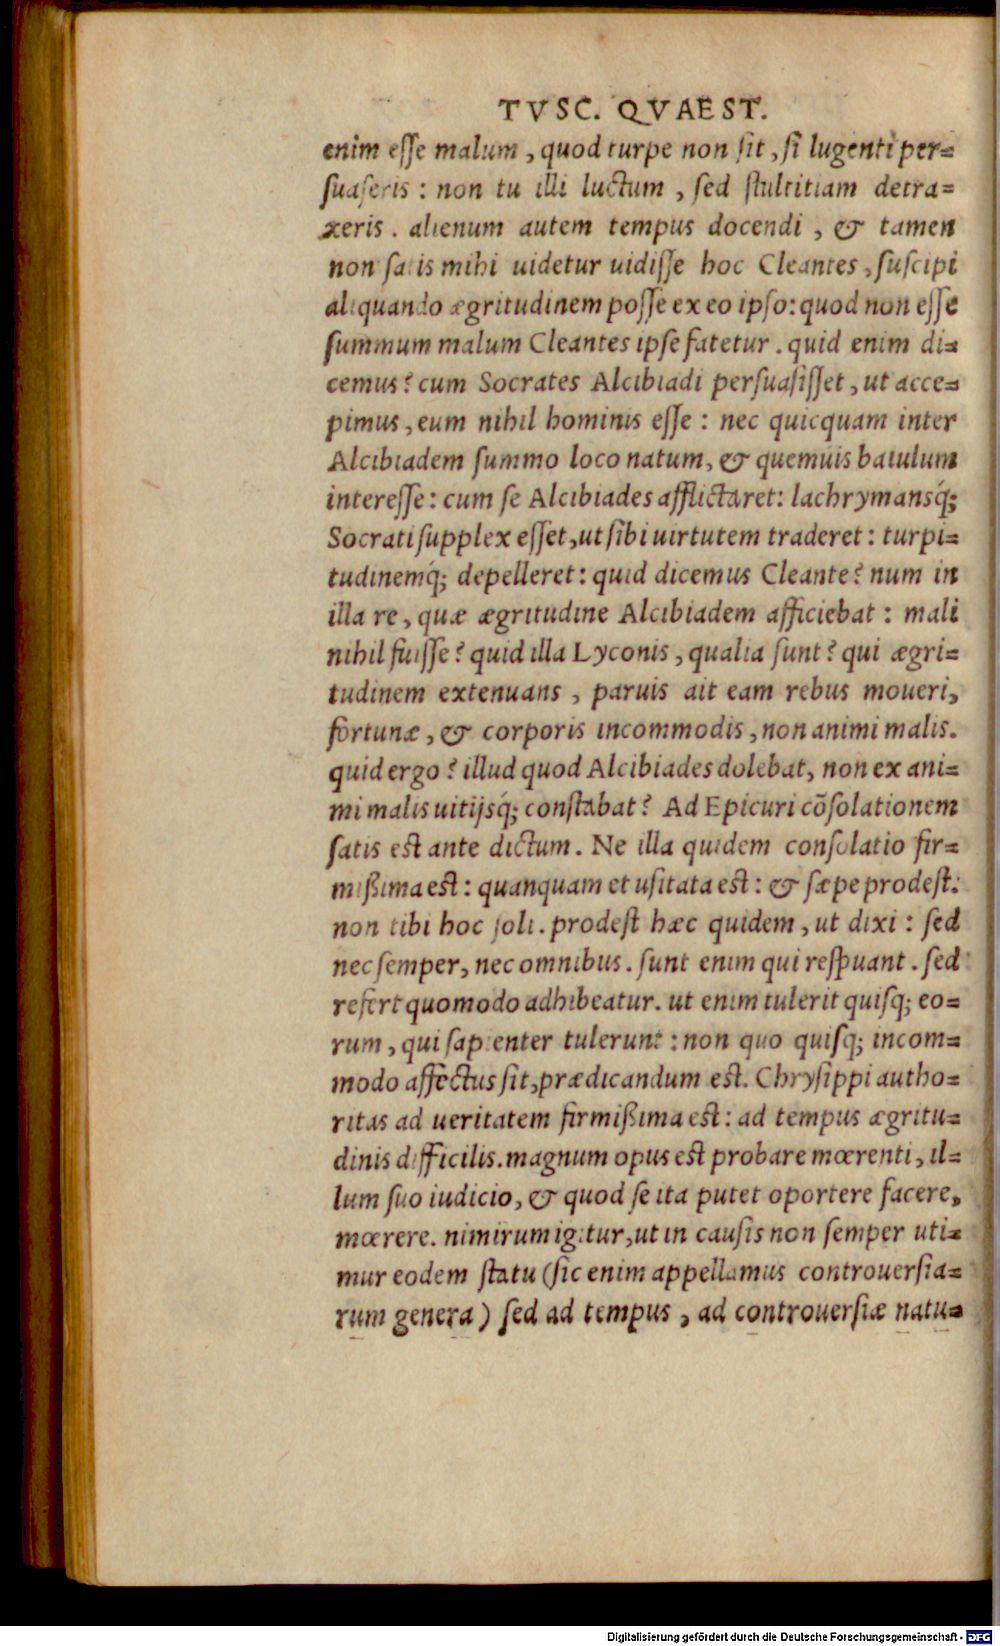 TVSC. QVAEST.
enim eſſe malum, quod turpe non ſit, ſi lugenti per=
ſuaſeris: non tu illi luctum, ſed ſtultitiam detra=
xeris. alienum autem tempus docendi, & tamen
non ſatis mihi uidetur uidiſſe hoc Cleantes, ſuſcipi
aliquando ægritudinem poſſe ex eo ipſo: quod non eſſe
ſummum malum Cleantes ipſe fatetur. quid enim di=
cemus? cum Socrates Alcibiadi perſuaſiſſet, ut acce=
pimus, eum nihil hominis eſſe: nec quicquam inter
Alcibiadem ſummo loco natum, & quemuis baiulum
intereſſe: cum ſe Alcibiades afflictaret: lachrymansq́;
Socrati ſupplex eſſet, ut ſibi uirtutem traderet: turpi=
tudinemq́; depelleret: quid dicemus Cleante? num in
illa re, quæ ægritudine Alcibiadem afficiebat: mali
nihil fuiſſe? quid illa Lyconis, qualia ſunt? qui ægri=
tudinem extenuans, paruis ait eam rebus moueri,
fortunæ, & corporis incommodis, non animi malis.
quid ergo? illud quod Alcibiades dolebat, non ex ani=
mi malis uitijsq́; conſtabat? Ad Epicuri cõſolationem
ſatis eſt ante dictum. Ne illa quidem conſolatio fir=
mißima eſt: quanquam et uſitata eſt: & ſæpe prodeſt:
non tibi hoc ſoli. prodeſt hæc quidem, ut dixi: ſed
nec ſemper, nec omnibus. ſunt enim qui reſpuant. ſed
refert quomodo adhibeatur. ut enim tulerit quiſq; eo=
rum, qui ſapienter tulerunt: non quo quiſq; incom=
modo affectus ſit, prædicandum eſt. Chryſippi autho=
ritas ad ueritatem firmißima eſt: ad tempus ægritu=
dinis difficilis. magnum opus eſt probare mœrenti, il=
lum ſuo iudicio, & quod ſe ita putet oportere facere,
mœrere. nimirum igitur, ut in cauſis non ſemper uti=
mur eodem ſtatu (ſic enim appellamus controuerſia=
rum genera) ſed ad tempus, ad controuerſiæ natu=
Digitalisierung gefördert durch die Deutsche Forschungsgemeinschaft - DFG